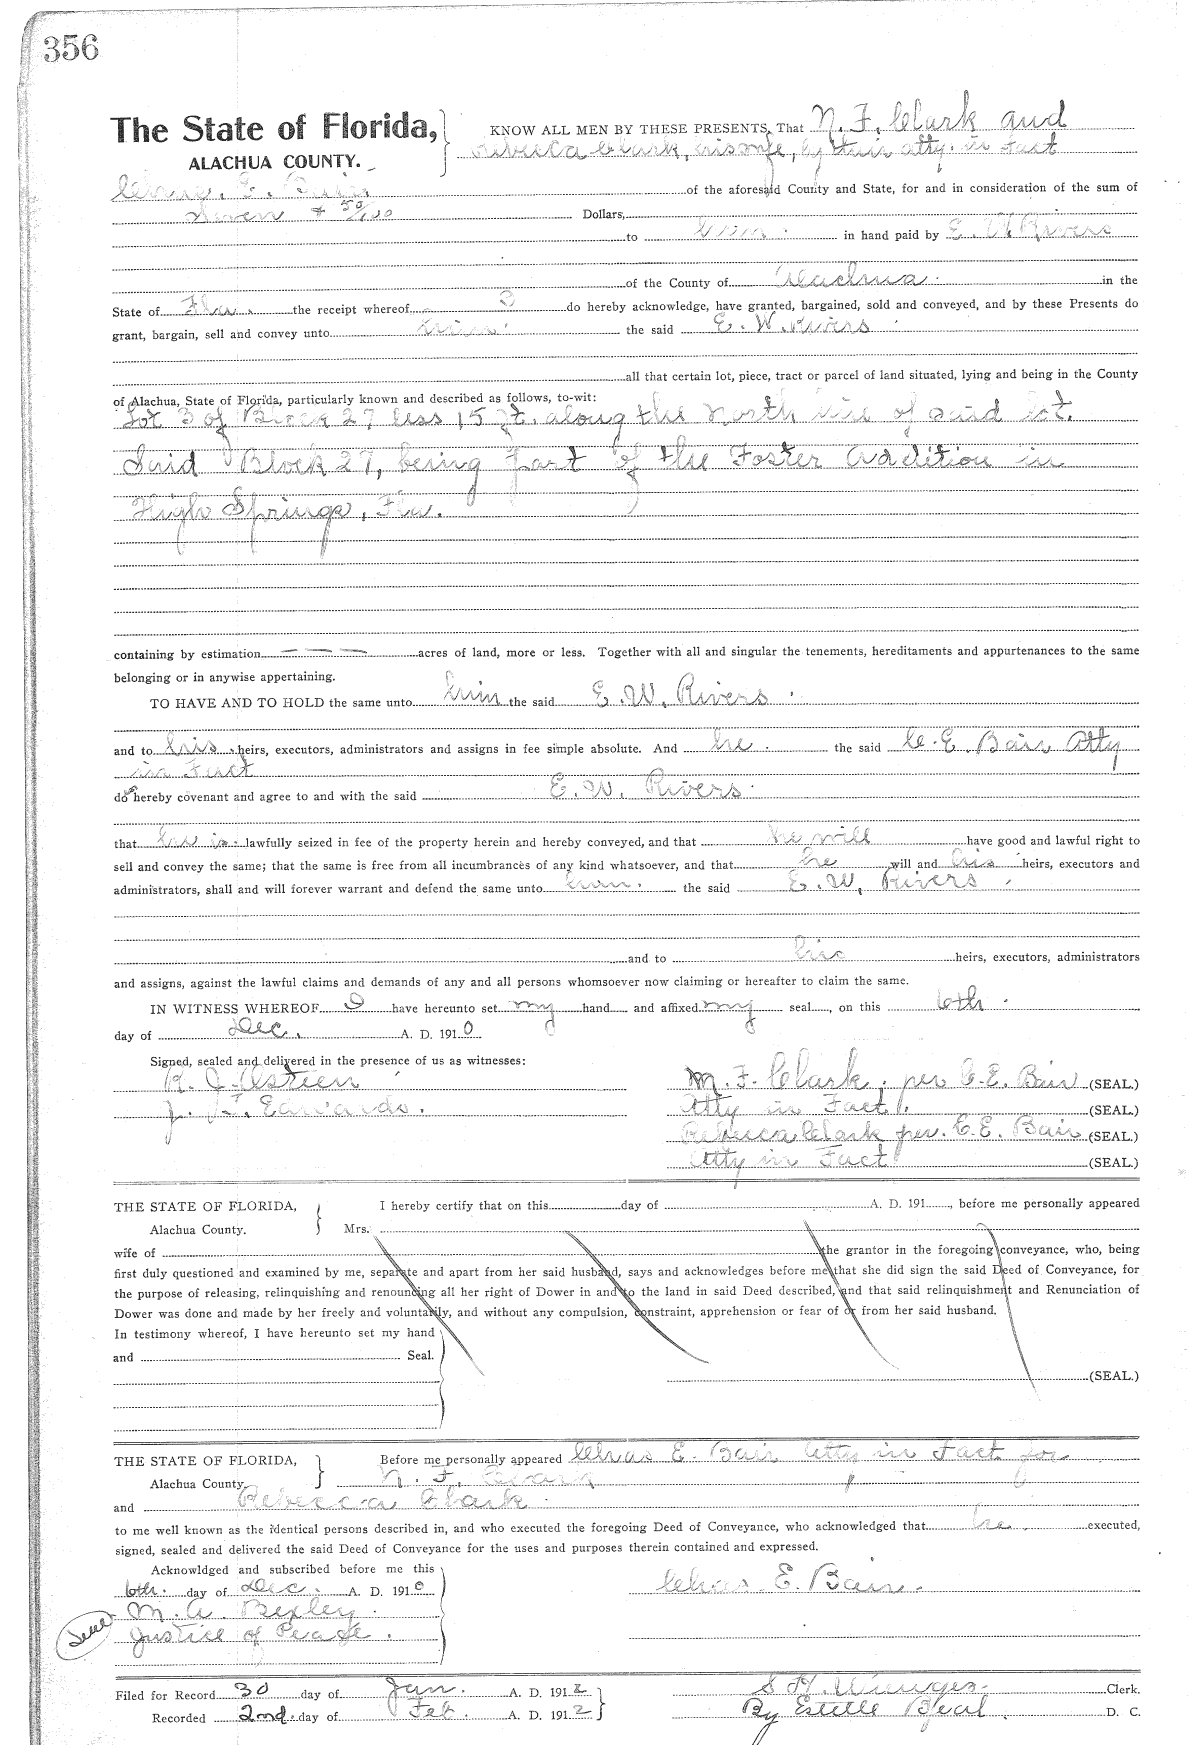 356
The State of Florida,
ALACHUA COUNTY.
KNOW ALL MEN BY THESE PRESENTS, That N. F. Clark and
Rebecca Clark, his wife, by their atty. in fact
Chas. E. Bair of the aforesaid County and State, for and in consideration of the sum of
Seven & 50/100 Dollars,
to him in hand paid by E. W. Rivers
of the County of Alachua in the
State of Fla. the receipt whereof I do hereby acknowledge, have granted, bargained, sold and conveyed, and by these Presents do
grant, bargain, sell and convey unto him the said E. W. Rivers
all that certain lot, piece, tract or parcel of land situated, lying and being in the County
of Alachua, State of Florida, particularly known and described as follows, to-wit:
Lot 3 of Block 27 less 15 ft. along the North line of said lot.
Said Block 27, being part of the Foster Addition in
High Springs, Fla.
containing by estimation — — — acres of land, more or less. Together with all and singular the tenements, hereditaments and appurtenances to the same
belonging or in anywise appertaining.
TO HAVE AND TO HOLD the same unto him the said E. W. Rivers
and to his heirs, executors, administrators and assigns in fee simple absolute. And he the said C. E. Bair Atty
in Fact
does hereby covenant and agree to and with the said E. W. Rivers
that he is lawfully seized in fee of the property herein and hereby conveyed, and that he will have good and lawful right to
sell and convey the same; that the same is free from all incumbrances of any kind whatsoever, and that he will and his heirs, executors and
administrators, shall and will forever warrant and defend the same unto him the said E. W. Rivers
and to his heirs, executors, administrators
and assigns, against the lawful claims and demands of any and all persons whomsoever now claiming or hereafter to claim the same.
IN WITNESS WHEREOF I have hereunto set my hand and affixed my seal, on this 6th
day of Dec. A. D. 1910
Signed, sealed and delivered in the presence of us as witnesses:
R. J. Osteen M. F. Clark. per C. E. Bair (SEAL.)
J. F. Edwards. Atty in Fact. (SEAL.)
Rebecca Clark per. C. E. Bair (SEAL.)
Atty in Fact (SEAL.)
THE STATE OF FLORIDA,
Alachua County.
I hereby certify that on this day of A. D. 191 , before me personally appeared
Mrs.
wife of the grantor in the foregoing conveyance, who, being
first duly questioned and examined by me, separate and apart from her said husband, says and acknowledges before me that she did sign the said Deed of Conveyance, for
the purpose of releasing, relinquishing and renouncing all her right of Dower in and to the land in said Deed described, and that said relinquishment and Renunciation of
Dower was done and made by her freely and voluntarily, and without any compulsion, constraint, apprehension or fear of or from her said husband.
In testimony whereof, I have hereunto set my hand
and Seal.
(SEAL.)
THE STATE OF FLORIDA,
Alachua County.
Before me personally appeared Chas E. Bair Atty in Fact for
N. F. Clark
and Rebecca Clark
to me well known as the identical persons described in, and who executed the foregoing Deed of Conveyance, who acknowledged that he executed,
signed, sealed and delivered the said Deed of Conveyance for the uses and purposes therein contained and expressed.
Acknowldged and subscribed before me this
6th. day of Dec. A. D. 1910 Chas. E. Bair.
M. A. Bexley.
Seal Justice of Peace.
Filed for Record 30 day of Jan. A. D. 1912 S. H. Wienges. Clerk.
Recorded 2nd. day of Feb. A. D. 1912 By Estelle Beal D. C.